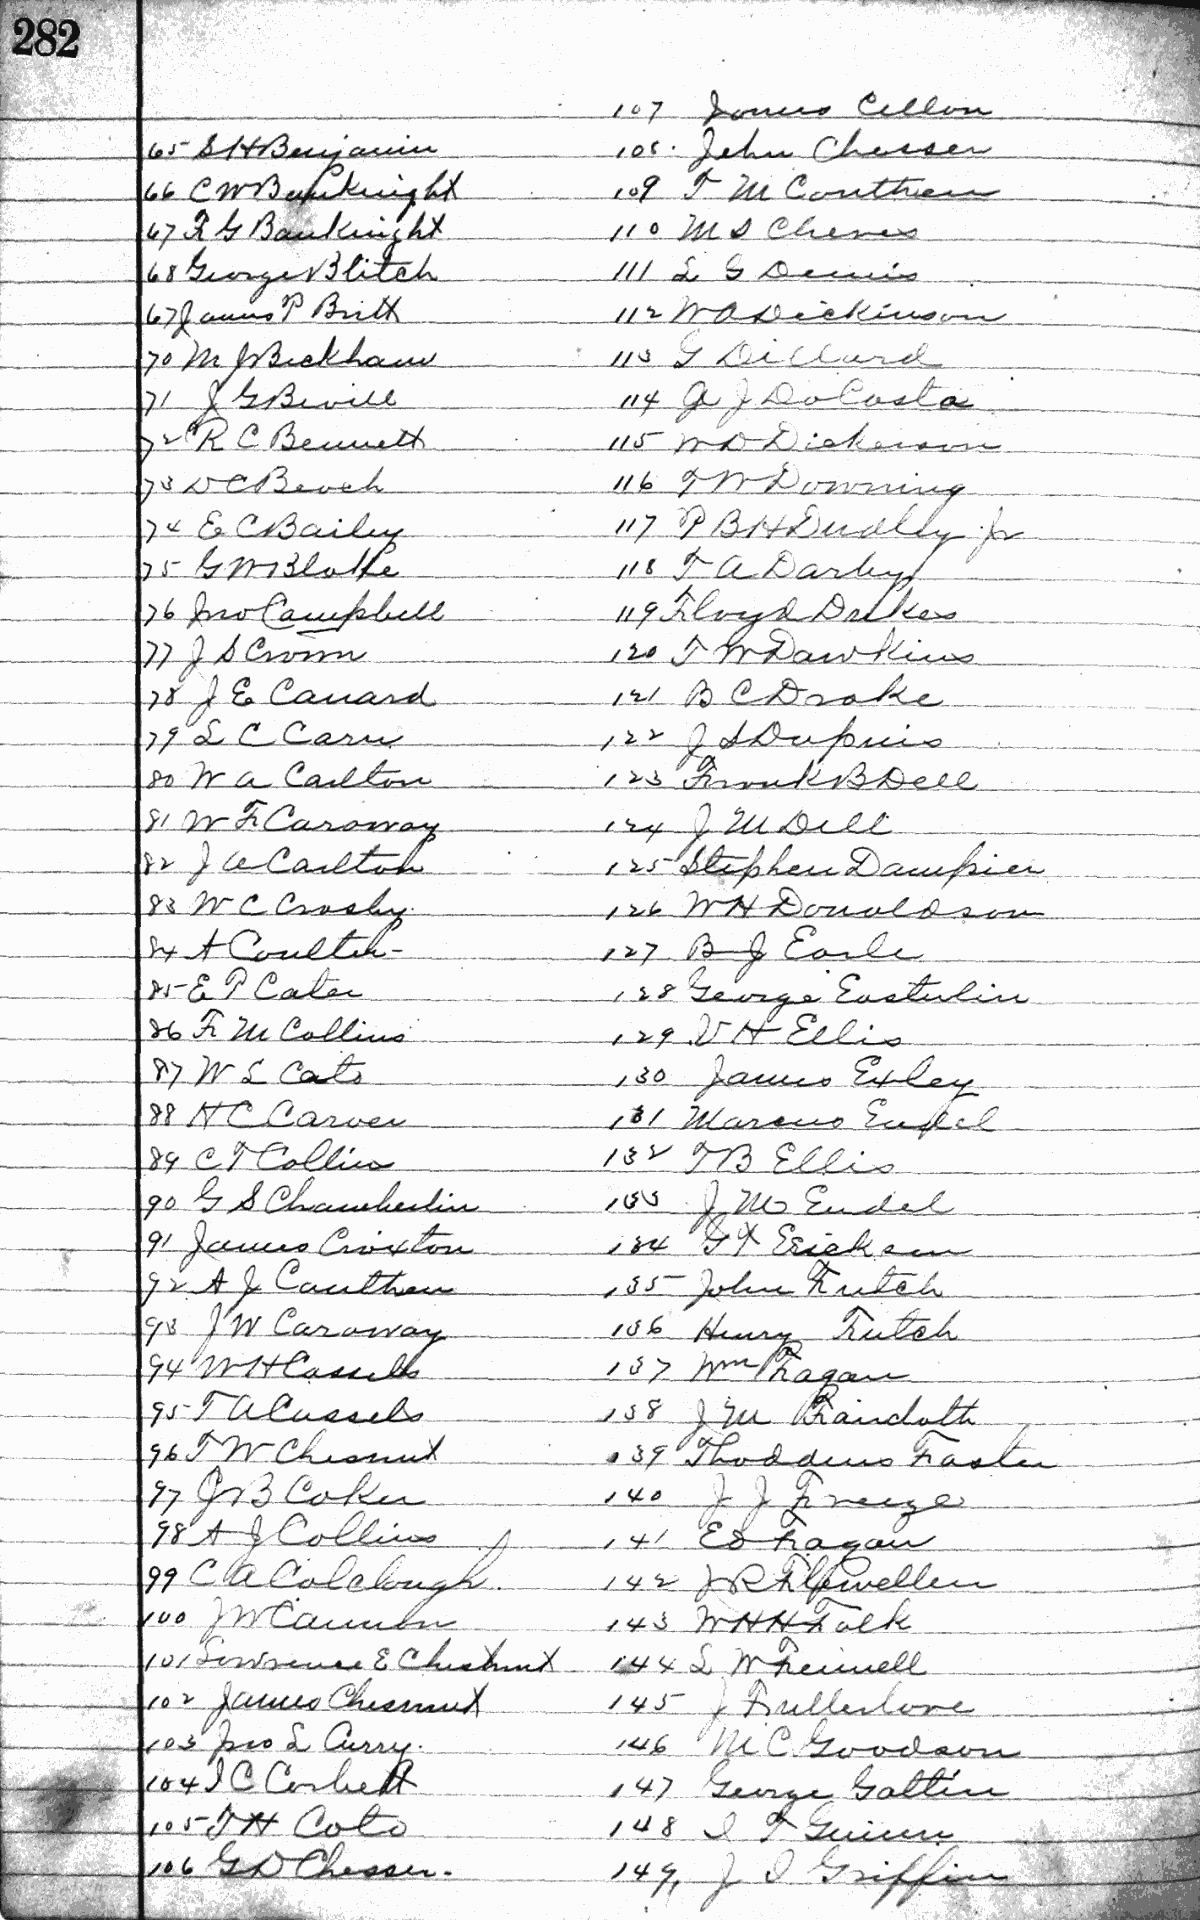 282
65 S H Benjamin
66 C W Bauknight
67 F G Bauknight
68 George Blitch
67 James P Britt
70 M J Beckham
71 J G Bevill
72 R C Bennett
73 D C Beach
74 E C Bailey
75 G W Blake
76 Jno Campbell
77 J S Crown
78 J E Canard
79 L C Carn
80 W A Carlton
81 W F Caraway
82 J A Carlton
83 W C Crosby
84 A Coulter
85 E P Cater
86 F M Collins
87 W L Cato
88 H C Carver
89 C T Collins
90 G S Chamberlin
91 James Croxton
92 A J Cauthen
93 J W Caraway
94 W H Cassels
95 T A Cassels
96 T W Chesnut
97 J B Coker
98 A J Collins
99 C A Colclough
100 J W Cannon
101 Lawrence E Chestnut
102 James Chesnut
103 Jno L Curry
104 I C Corbett
105 T H Cato
106 G D Chesser
107 James Cellon
108 John Chesser
109 T M Cauthen
110 M S Cheves
111 L G Dennis
112 W A Dickinson
113 G Dillard
114 A J DaCosta
115 W D Dickerson
116 T W Downing
117 P B H Dudley Jr
118 T A Darby
119 Floyd Dukes
120 T W Dawkins
121 B C Drake
122 J S Dupuis
123 Frank B Dell
124 J M Dell
125 Stephen Dampier
126 W H Donaldson
127 B J Earle
128 George Easterlin
129 V H Ellis
130 James Exley
131 Marcus Endel
132 T B Ellis
133 J M Endel
134 G F Ericksen
135 John Futch
136 Henry Futch
137 Wm Fagan
138 J M Faircloth
139 Thaddeus Faster
140 J J Freeze
141 Ed Fagan
142 J R Flewellen
143 W H H Folk
144 L W Fennell
145 J Fullerlove
146 M C Goodson
147 George Gattin
148 I T Guinn
149, J I Griffin